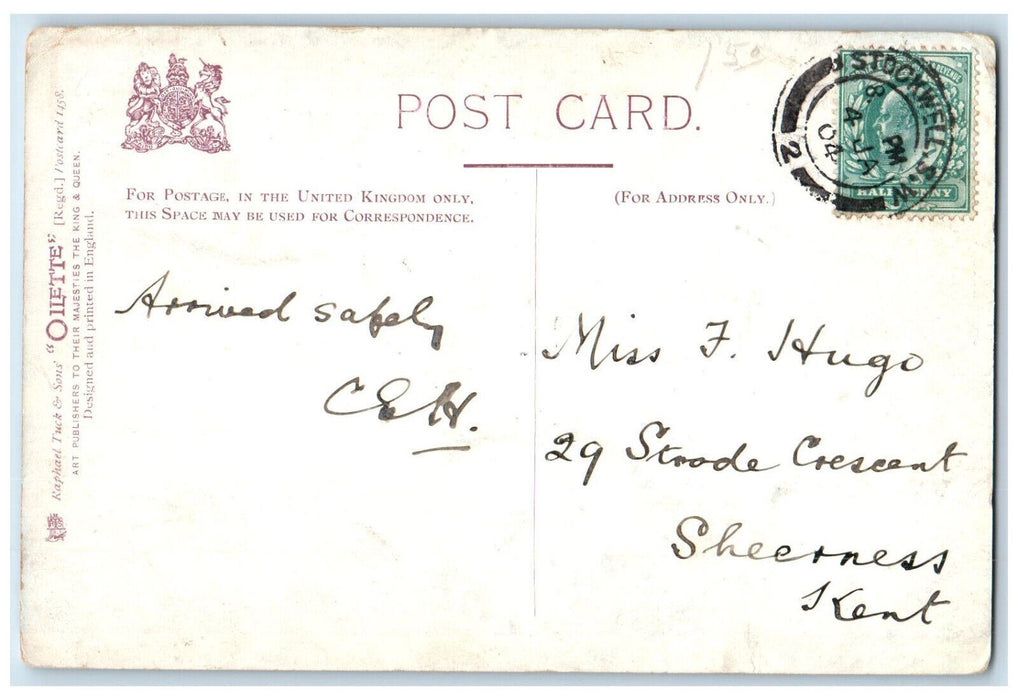 POST CARD.
FOR POSTAGE, IN THE UNITED KINGDOM ONLY,
THIS SPACE MAY BE USED FOR CORRESPONDENCE.
(FOR ADDRESS ONLY.)
Raphael Tuck & Sons' "OILETTE" [Regd.] Postcard 1458.
ART PUBLISHERS TO THEIR MAJESTIES THE KING & QUEEN.
Designed and printed in England.
STOCKWELL S.W.
8 PM
4 JA
04
2
REVENUE
HALFPENNY
Arrived safely
CEH.
Miss F. Hugo
29 Strode Crescent
Sheerness
Kent
150